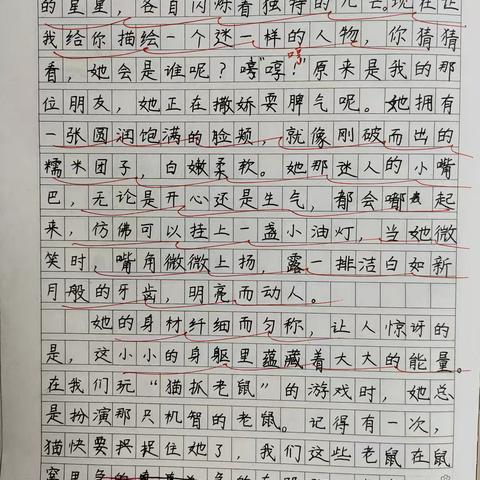 的星星，各自闪烁着独特的光芒。现在让
我给你描绘一个迷一样的人物，你猜猜
看，她会是谁呢？"哼哼！"原来是我的那
位朋友，她正在撒娇耍脾气呢。她拥有
一张圆润饱满的脸颊，就像刚破而出的
糯米团子，白嫩柔软。她那迷人的小嘴
巴，无论是开心还是生气，都会嘟起
来，仿佛可以挂上一盏小油灯，当她微
笑时，嘴角微微上扬，露一排洁白如新
月般的牙齿，明亮而动人。
她的身材纤细而匀称，让人惊讶的
是，这小小的身躯里蕴藏着大大的能量。
在我们玩“猫抓老鼠”的游戏时，她总
是扮演那只机智的老鼠。记得有一次，
猫快要捉住她了，我们这些老鼠在鼠
窝里急的